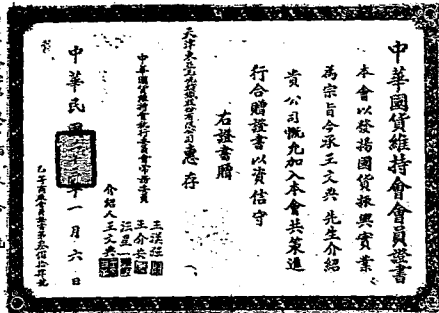 中華國貨維持會會員證書
本會以發揚國貨振興實業
為宗旨今承王文典先生介紹
貴公司慨允加入本會共策進
行合贈證書以資信守
右證書贈
天津東亞毛呢紡織股份有限公司惠存
中華國貨維持會執行委員會常務委員
王漢强
王介安
汪星一
介紹人王文典
中華民國年一月六日